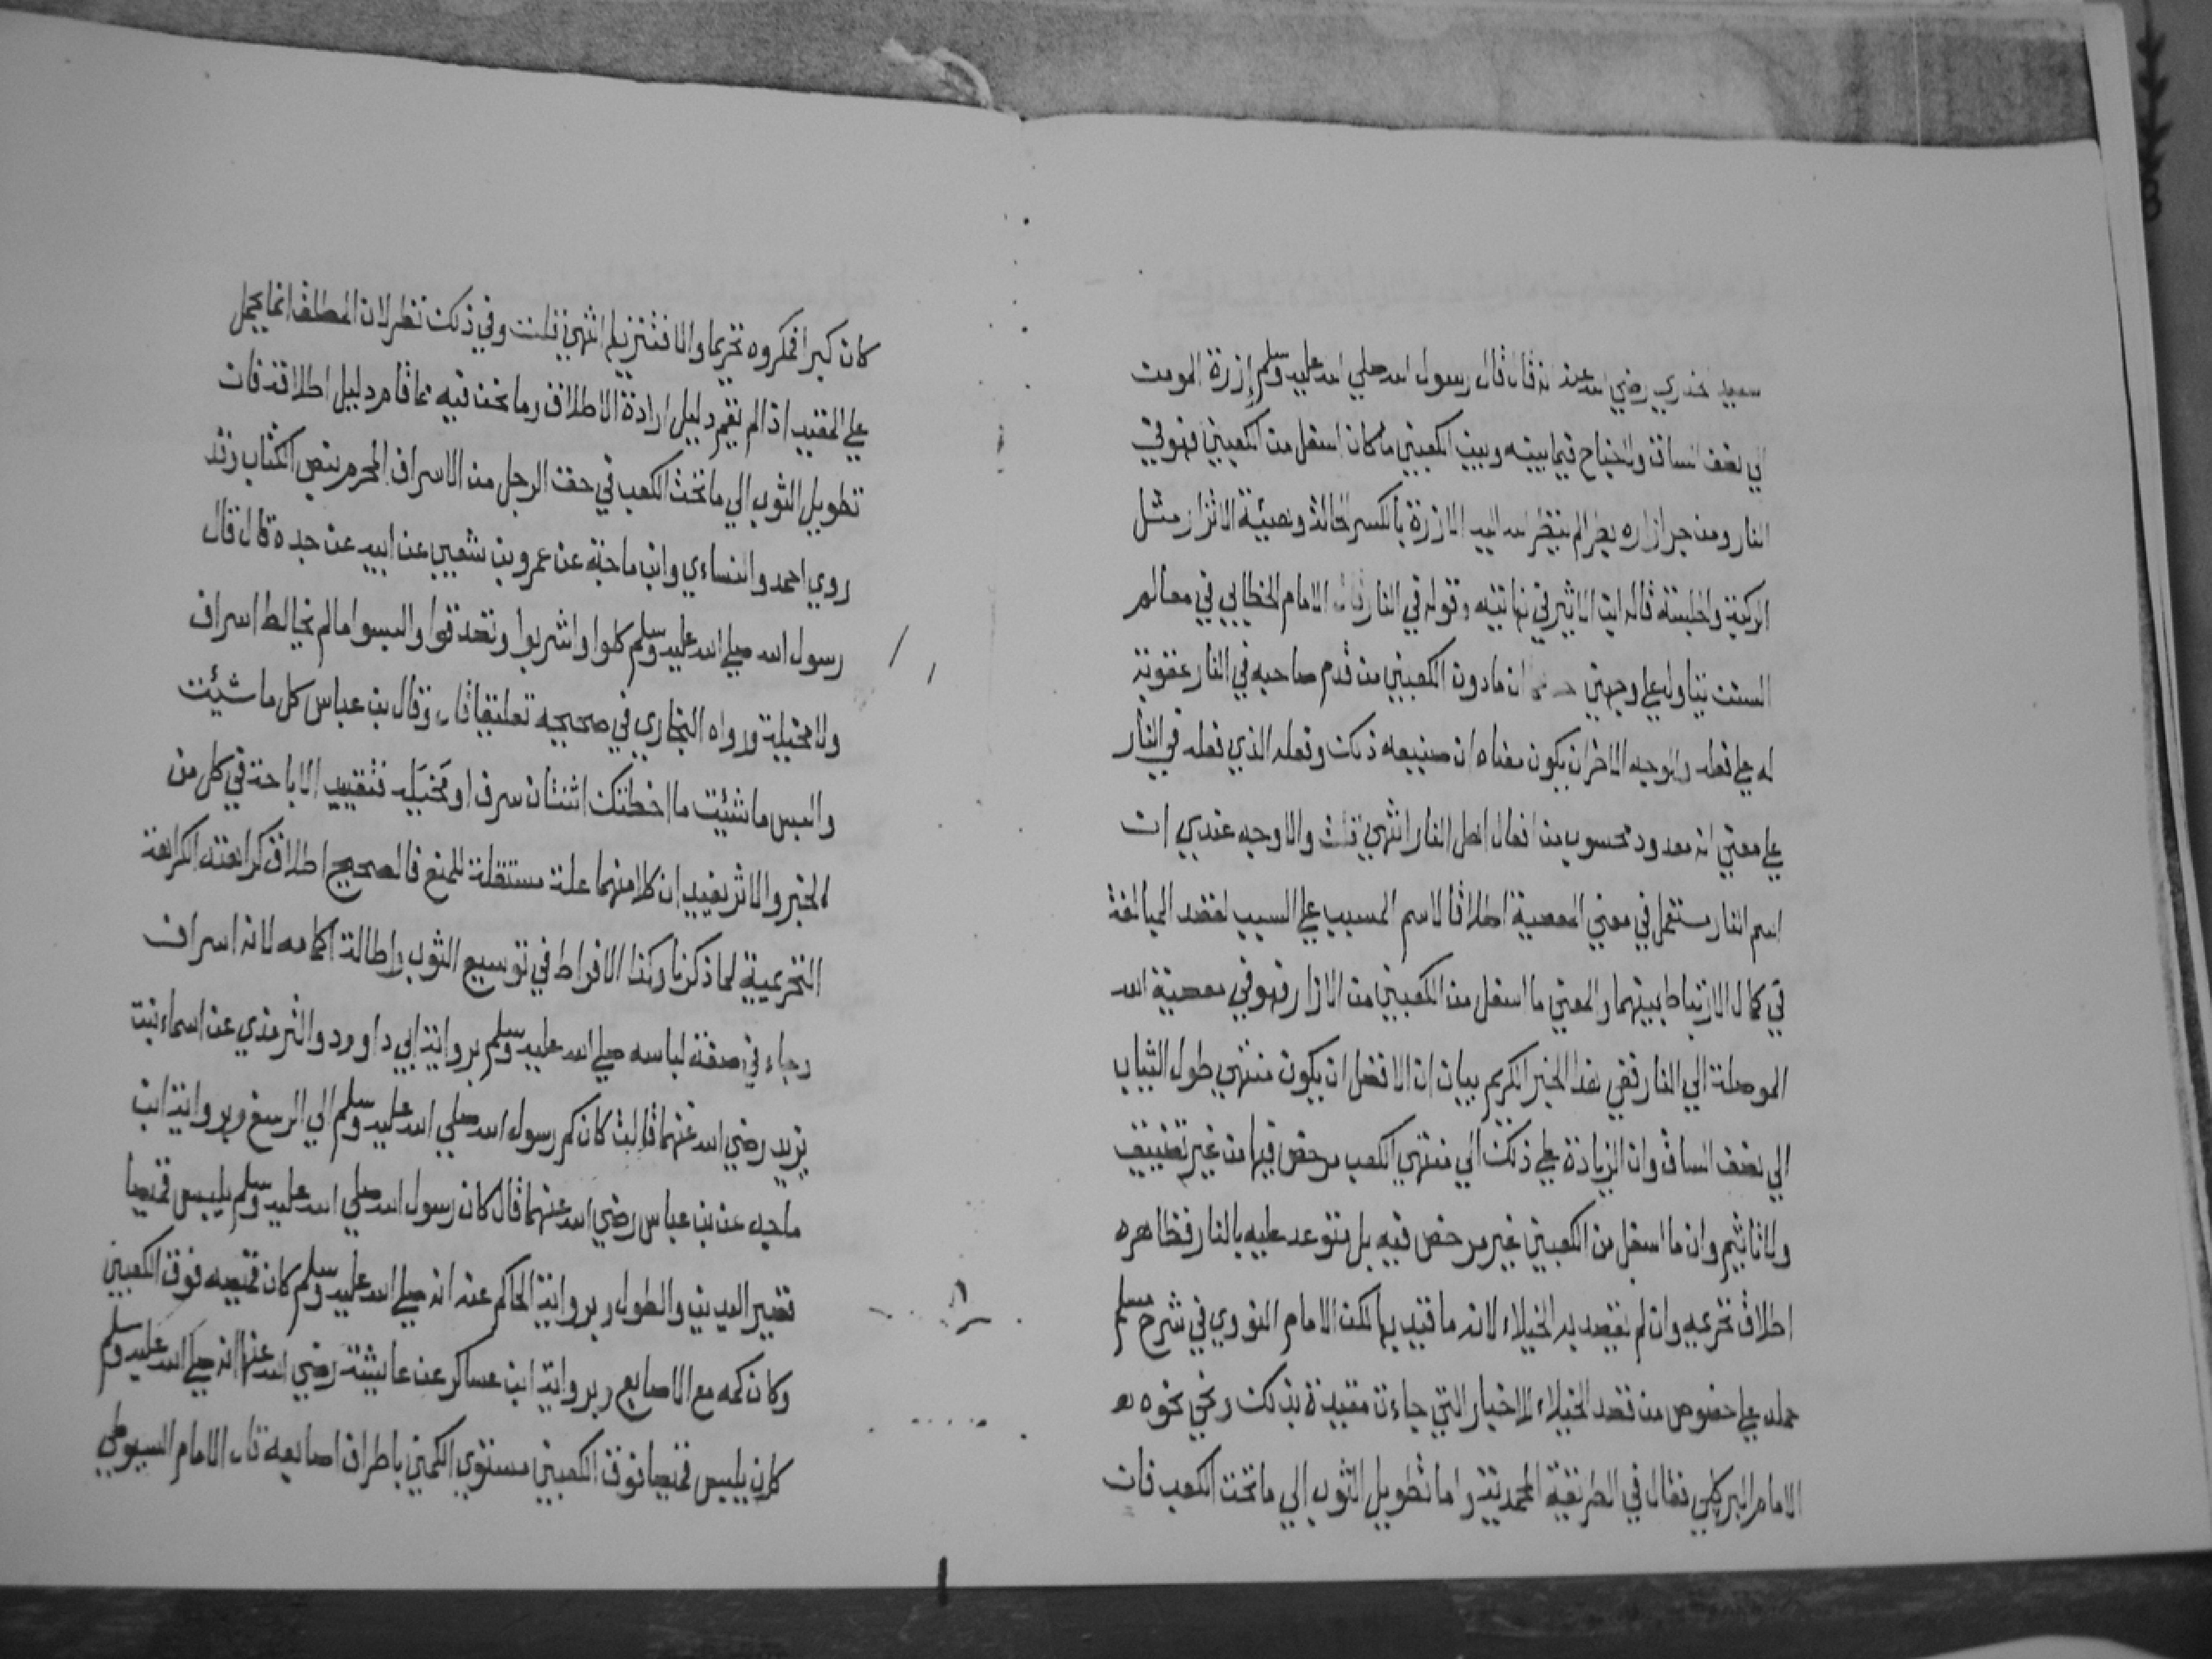 سعيد الخدري رضي الله عنه انه قال قال رسول الله صلي الله عليه وسلم إزرة المومن
الي نصف الساق ولا جناح فيما بينه وبين الكعبين ما كان اسفل من الكعبين فهو في
النار ومن جر ازاره بطرا لم ينظر الله اليه الازرة بالكسر الحالة وهيئة الاتزار مثل
الركبة والجلسة قاله ابن الاثير في نهايته وقوله في النار قال الامام الخطابي في معالم
السنن يتاول علي وجهين ان ما دون الكعبين من قدم صاحبه في النار عقوبة
له علي فعله والوجه الاخر ان يكون معناه ان صنيعه ذلك وفعله الذي فعله في النار
علي معني انه معدود محسوب من افعال اهل النار انتهي قلت والاوجه عندي ان
اسم النار مستعمل في معني المعصية اطلاقا لاسم المسبب علي السبب لقصد المبالغة
في كمال الارتباط بينهما والمعني ما اسفل من الكعبين من الازار فهو في معصية الله
الموصلة الي النار ففي هذا الخبر الكريم بيان ان الافضل ان يكون منتهي طول الثياب
الي نصف الساق وان الزيادة علي ذلك الي منتهي الكعب مرخص فيها من غير تضييق
ولا تاثيم وان ما اسفل من الكعبين غير مرخص فيه بل متوعد عليه بالنار فظاهره
اطلاق تحريمه وان لم يقصد به الخيلاء لانه ما قيد بها لكن الامام النووي في شرح مسلم
حمله علي خصوص من قصد الخيلاء للاخبار التي جاءت مقيدة بذلك ونحي نحوه
الامام البركلي فقال في الطريقة المحمدية واما تطويل الثوب الي ما تحت الكعب فان
كان كبرا فمكروه تحريما والا فتنزيها انتهي قلت وفي ذلك نظر لان المطلق انما يحمل
علي المقيد اذا لم يقم دليل ارادة الاطلاق وما نحن فيه مما قام دليل اطلاقه فان
تطويل الثوب الي ما تحت الكعب في حق الرجل من الاسراف المحرم بنص الكتاب وقد
روي احمد والنساءي وابن ماجة عن عمرو بن شعيب عن ابيه عن جده قال قال
رسول الله صلي الله عليه وسلم كلوا واشربوا وتصدقوا والبسوا مالم يخالط اسراف
ولا مخيلة ورواه البخاري في صحيحه تعليقا قال وقال بن عباس كل ما شيئت
والبس ما شئيت ما اخطتك اثنتان سرف او مخيله فتقييد الاباحة في كل من
الخبر والاثر يفيد ان كلا منهما علة مستقلة للمنع فالصحيح اطلاق كراهته الكراهة
التحريمية لما ذكرنا وكذا الافراط في توسيع الثوب واطالة اكمامه لانه اسراف
وجاء في صفة لباسه صلي الله عليه وسلم برواية ابي داوود والترمذي عن اسماء بنت
يزيد رضي الله عنهما قالت كان كم رسول الله صلي الله عليه وسلم الي الرسغ وبرواية ابن
ماجه عن بن عباس رضي الله عنهما قال كان رسول الله صلي الله عليه وسلم يلبس قميصا
قصير اليدين والطول وبرواية الحاكم عنه انه صلي الله عليه وسلم كان قميصه فوق الكعبين
وكان كمه مع الاصابع وبرواية ابن عساكر عن عايشة رضي الله عنها انه صلي الله عليه وسلم
كان يلبس قميصا فوق الكعبين مستوي الكمين باطراف اصابعه قال الامام السيوطي